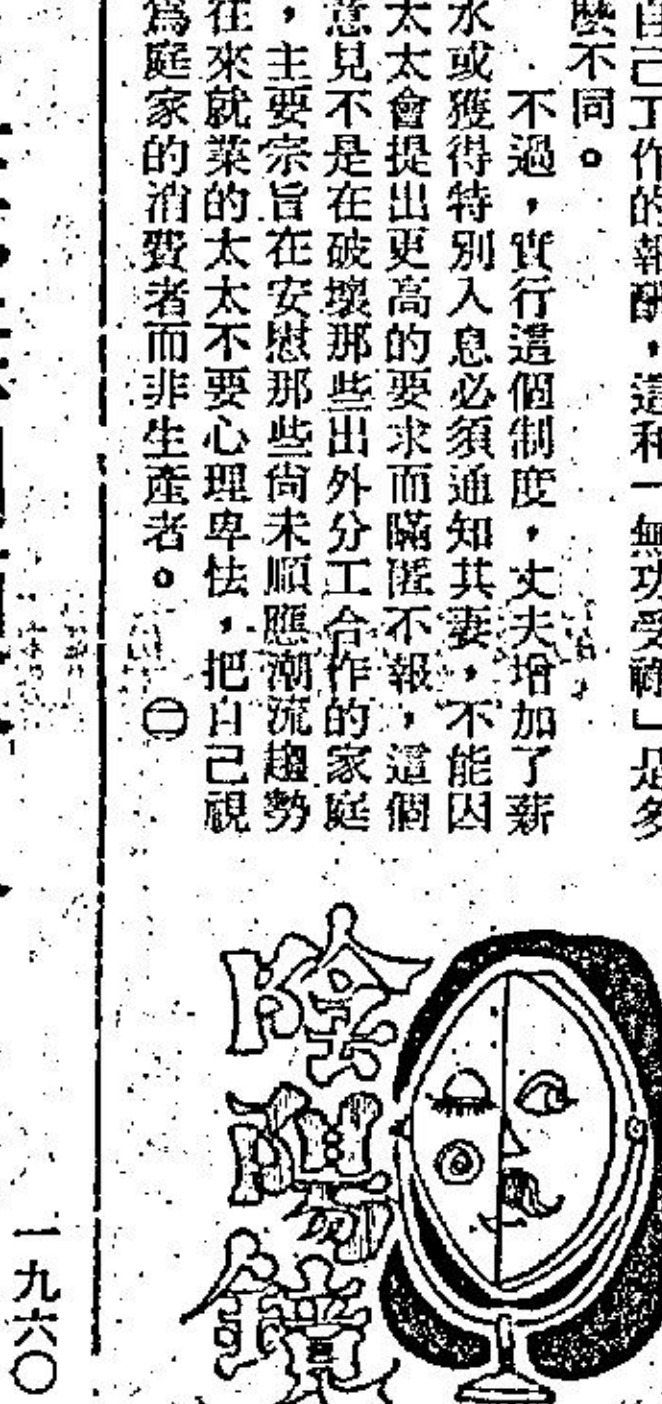 自己工作的報酬，這和「無功受祿」是多
麼不同。
不過，實行這個制度，丈夫增加了薪
水或獲得特別入息必須通知其妻，不能因
太太會提出更高的要求而瞞匿不報，這個
意見不是在破壞那些出外分工合作的家庭
，主要宗旨在安慰那些尚未順應潮流趨勢
在來就業的太太不要心理卑怯，把自己視
為庭家的消費者而非生產者。㊀
陰陽鏡
一九六〇